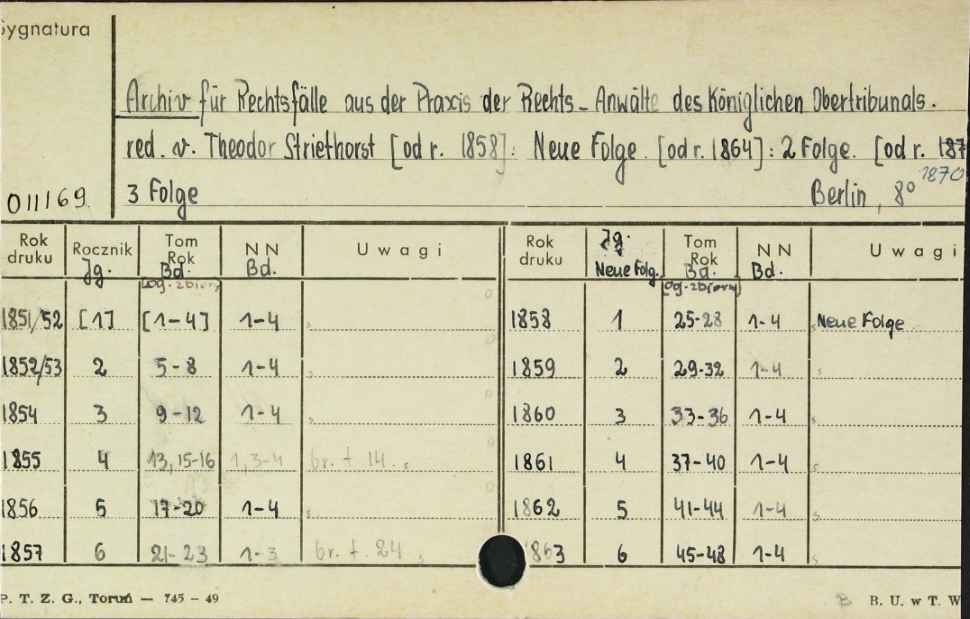 Sygnatura
Archiv für Rechtsfälle aus der Praxis der Rechts-Anwälte des Königlichen Obertribunals.
red. v. Theodor Striethorst [od r. 1858]: Neue Folge. [od r. 1864]: 2 Folge. [od r. 187
1870
011169 3 Folge Berlin, 8°
Rok druku Rocznik Jg. Tom Rok Bd. NN Bd. Uwagi Rok druku Jg. Neue Folg. Tom Rok Bd. NN Bd. Uwagi
og. zbioru [og. zbioru]
1851/52 [1] [1-4] 1-4 1858 1 25-28 1-4 Neue Folge
1852/53 2 5-8 1-4 1859 2 29-32 1-4
1854 3 9-12 1-4 1860 3 33-36 1-4
1855 4 13, 15-16 1, 3-4 br. t. 14. 1861 4 37-40 1-4
1856 5 17-20 1-4 1862 5 41-44 1-4
1857 6 21-23 1-3 br. t. 24 1863 6 45-48 1-4
P. T. Z. G., Toruń — 745 - 49 B. U. w T. W